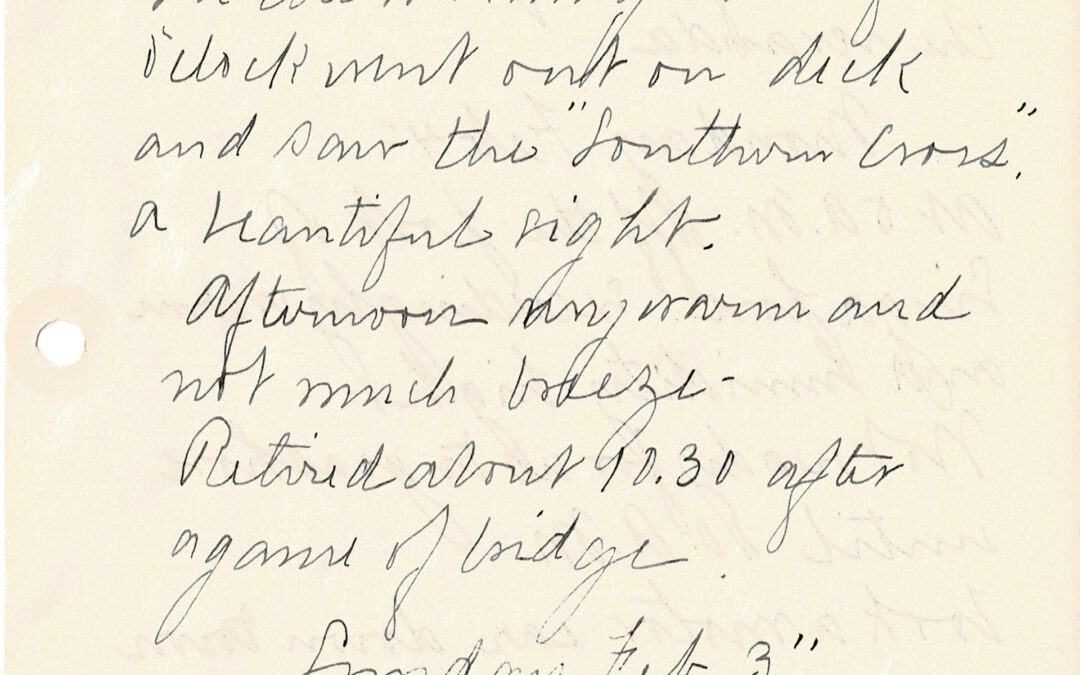 o'clock went out on deck
and saw the "Southern Cross",
a beautiful sight.
Afternoon very warm and
not much breeze-
Retired about 10.30 after
a game of bridge.
Sunday Feb. 3"